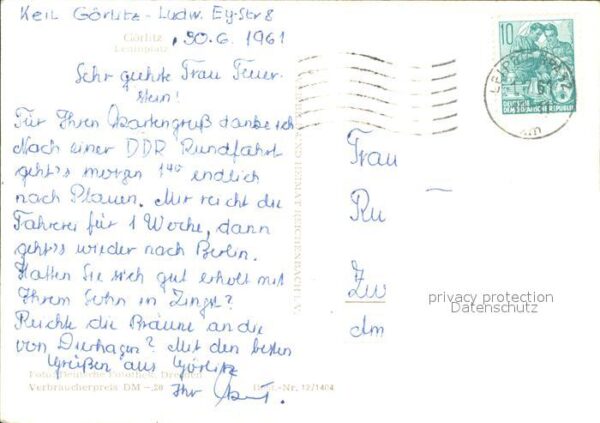 Keil Görlitz - Ludw. Ey-Str 8
Görlitz
Leninplatz
30.6.1961
Sehr geehrte Frau Feuer-
stein!
Für Ihren Kartengruß danke ich
Nach einer DDR Rundfahrt
geht's morgen 1⁴⁰ endlich
nach Plauen. Mir reicht die
Fahrerei für 1 Woche, dann
geht's wieder nach Berlin.
Hatten Sie sich gut erholt mit
Ihrem Sohn in Zingst?
Reichte die Bräune an die
von Dierhagen? Mit den besten
Grüßen aus Görlitz
Ihr
Foto: Deutsche Fotothek, Dresden
Verbraucherpreis DM -.20
Best.-Nr. 12/1404
UND HEIMAT REICHENBACH i. V.
10
DEUTSCHE
DEMOKRATISCHE REPUBLIK
LEIPZIG
Frau
Ru
Zw
dm
privacy protection
Datenschutz